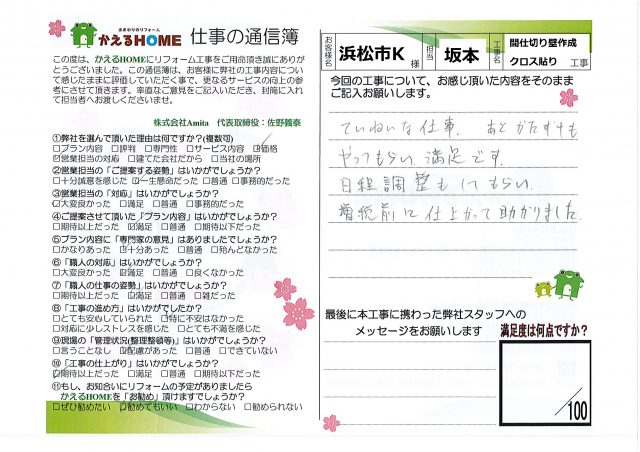 住まいのリフォーム
かえるHOME 仕事の通信簿
この度は、かえるHOMEにリフォーム工事をご用命頂き誠にありが
とうございました。この通信簿は、お客様に弊社の工事内容につい
て感じたままに評価していただく事で、更なるサービスの向上の参
考にさせて頂きます。率直なご意見をご記入いただき、封筒に入れ
て担当者へお渡しくださいませ。
株式会社Amita 代表取締役：佐野義泰
①弊社を選んで頂いた理由は何ですか?(複数可)
□プラン内容 □評判 □専門性 □サービス内容 ☑価格
☑営業担当の対応 □建てた会社だから □当社の場所
②営業担当の「ご提案する姿勢」はいかがでしょうか?
□十分誠意を感じた ☑一生懸命だった □普通 □事務的だった
③営業担当の「対応」はいかがでしょうか?
☑大変良かった □満足 □普通 □事務的だった
④ご提案させて頂いた「プラン内容」はいかがでしょうか?
□期待以上だった ☑満足 □普通 □期待以下だった
⑤プラン内容に「専門家の意見」はありましたでしょうか?
□かなりあった ☑十分あった □普通 □殆んどなかった
⑥「職人の対応」はいかがでしょうか?
□大変良かった ☑満足 □普通 □良くなかった
⑦「職人の仕事の姿勢」はいかがでしょうか?
☑期待以上だった □満足 □普通 □雑だった
⑧「工事の進め方」はいかがでしたか?
□とても安心していられた ☑特に不安はなかった
□対応に少しストレスを感じた □とても不満を感じた
⑨現場の「管理状況(整理整頓等)」はいかがでしょうか?
□言うことなし ☑配慮があった □普通 □できていない
⑩「工事の仕上がり」はいかがでしょうか?
☑期待以上だった □満足 □普通 □期待以下だった
⑪もし、お知合いにリフォームの予定がありましたら
かえるHOMEを「お勧め」頂けますでしょうか?
□ぜひ勧めたい ☑勧めてもいい □わからない □勧められない
お客様名 浜松市K 様 担当 坂本 工事名 間仕切り壁作成
クロス貼り 工事
今回の工事について、お感じ頂いた内容をそのまま
ご記入お願いします。
ていねいな仕事、あとかたずけも
やってもらい、満足です。
日程調整もしてもらい、
増税前に仕上がって助かりました。
最後に本工事に携わった弊社スタッフへの
メッセージをお願いします
満足度は何点ですか?
/100